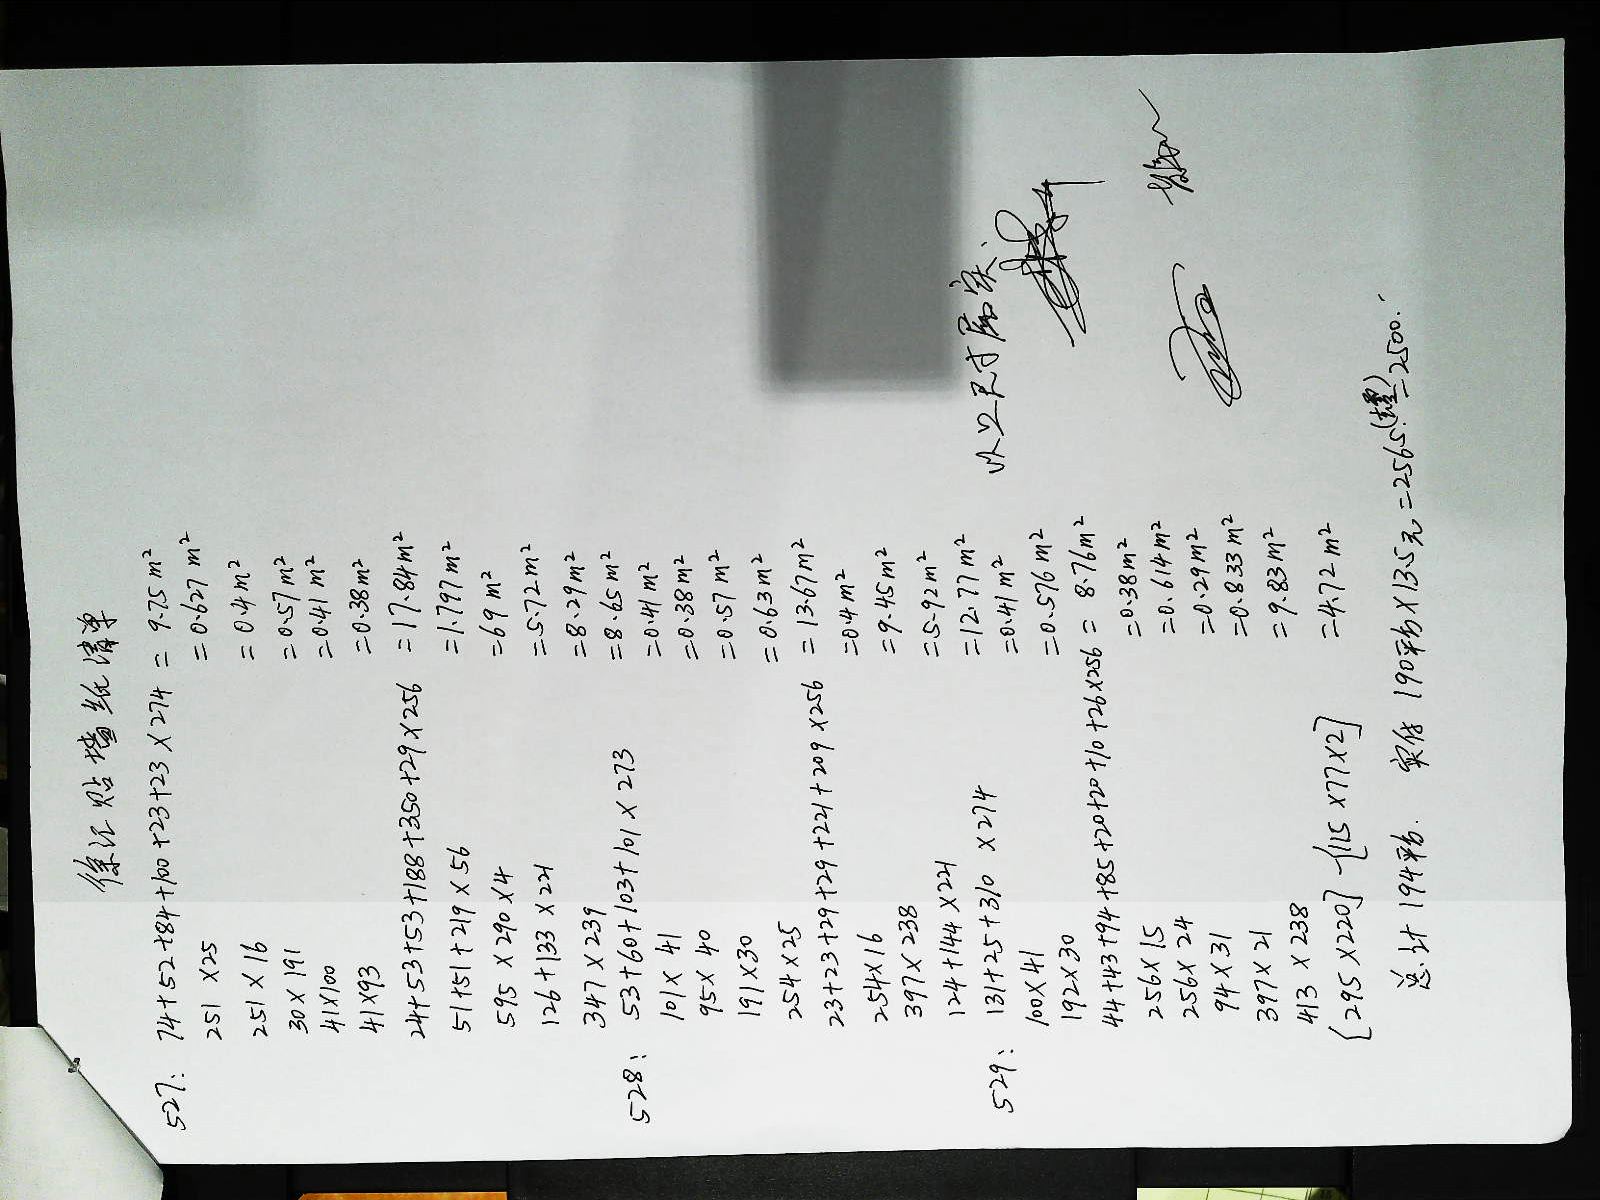 徐汇贴墙纸清单
527: 74+52+84+100+23+23×274 = 9.75m²
251×25 = 0.627m²
251×16 = 0.4m²
30×191 = 0.57m²
41×100 = 0.41m²
41×93 = 0.38m²
24+53+53+188+350+29×256 = 17.84m²
51+51+219×56 = 1.797m²
595×290×4 = 69m²
126+133×221 = 5.72m²
347×239 = 8.29m²
528: 53+60+103+101×273 = 8.65m²
101×41 = 0.41m²
95×40 = 0.38m²
191×30 = 0.57m²
254×25 = 0.63m²
23+23+29+29+221+209×256 = 13.67m²
254×16 = 0.4m²
397×238 = 9.45m²
124+144×221 = 5.92m²
529: 131+25+310×274 = 12.77m²
100×41 = 0.41m²
192×30 = 0.576m²
44+43+94+85+20+20+10+26×256 = 8.76m²
256×15 = 0.38m²
256×24 = 0.614m²
94×31 = 0.29m²
397×21 = 0.833m²
413×238 = 9.83m²
[295×220]-[115×77×2] = 4.72m²
总计194平方. 实付 190平方×13.5元=2565 =2500.
以上尺寸属实.